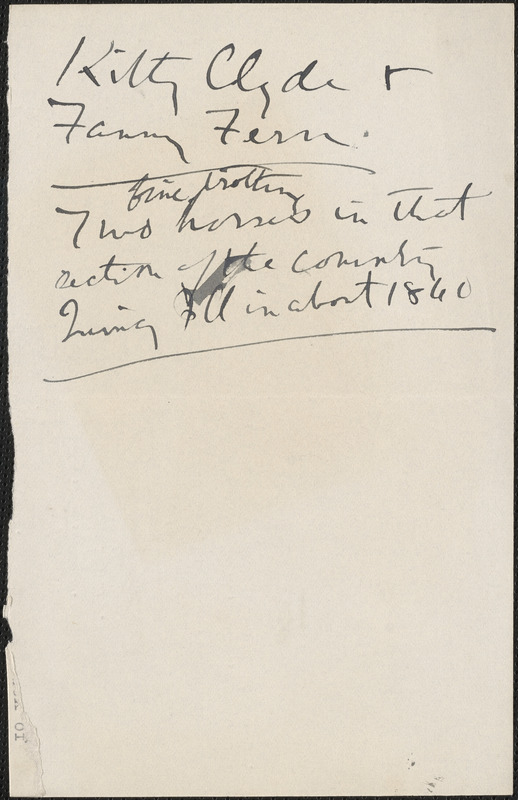 Kitty Clyde +
Fanny Fern.
fine trotting
Two horses in that
section of the country
Quincy Ill in about 1860